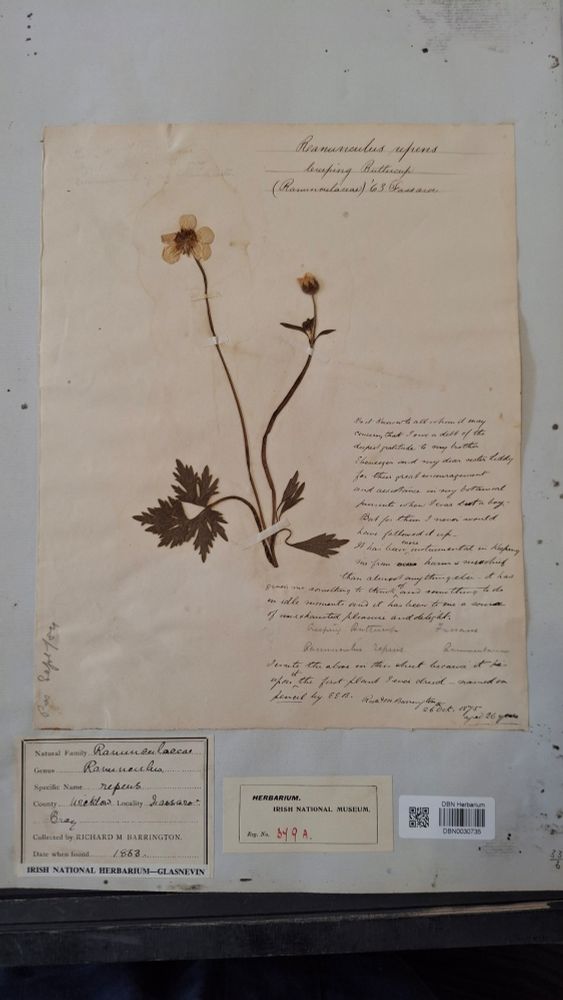 Ranunculus repens
Creeping Buttercup
(Ranunculaceae) '63 Fassaroe
Be it known to all whom it may
concern, that I owe a debt of the
deepest gratitude to my brother
Ebenezer and my dear sister
for their great encouragement
and assistance in my botanical
pursuits when I was but a boy.
But for them I never would
have followed it up.
It has been more instrumental in keeping
me from harm & mischief
than almost anything else - it has
given me something to think of, and something to do
in idle moments and it has been to me a source
of unexhausted pleasure and delight.
Creeping Buttercup Fassaroe
Ranunculus repens Ranunculaceae
I write the above on this sheet because it is
upon it the first plant I ever dried - named in
pencil by E.B. Richd M Barrington
26 Oct. 1875
aged 26 years
Natural Family Ranunculaceae
Genus Ranunculus
Specific Name repens
County Wicklow Locality Fassaroe
Bray
Collected by RICHARD M. BARRINGTON.
Date when found 1863.
IRISH NATIONAL HERBARIUM—GLASNEVIN
HERBARIUM.
IRISH NATIONAL MUSEUM.
Reg. No. 349 A.
DBN Herbarium
DBN0030735